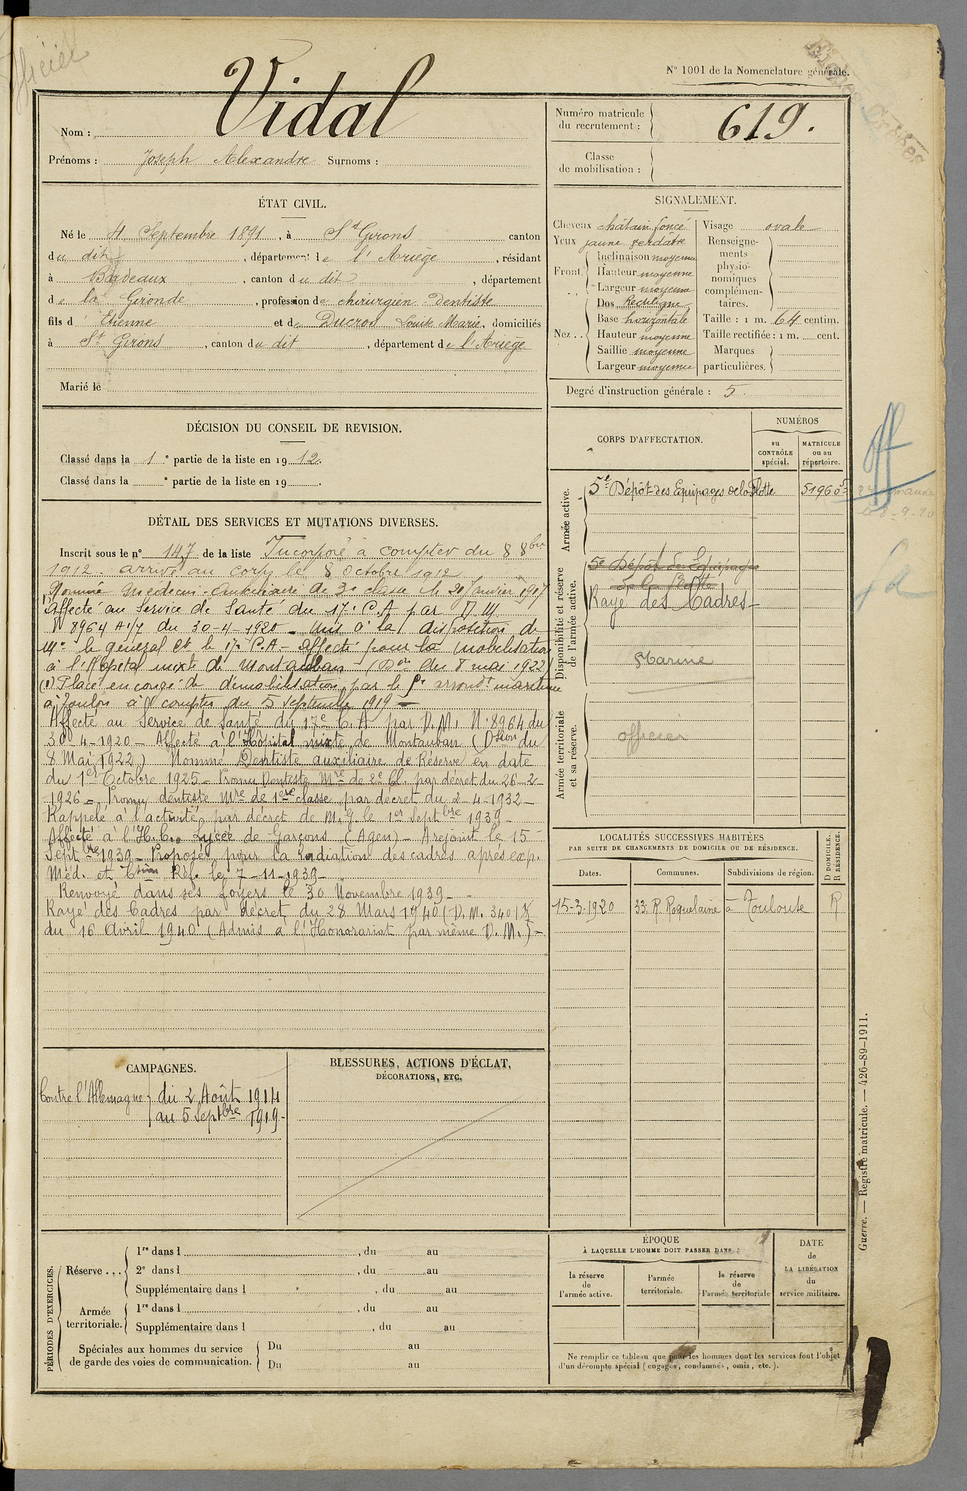 Officier
N° 1001 de la Nomenclature générale.
Nom : Vidal
Prénoms : Joseph Alexandre Surnoms :
Numéro matricule du recrutement : 619.
Classe de mobilisation :
ÉTAT CIVIL.
Né le 4 Septembre 1891, à St Girons canton
du dit, département de l'Ariège, résidant
à Bordeaux, canton du dit, département
de la Gironde, profession de chirurgien-Dentiste
fils d'Etienne et de Ducros Louise Marie, domiciliés
à St Girons, canton du dit, département de l'Ariège
Marié le
SIGNALEMENT.
Cheveux châtain foncé
Yeux jaune verdatre
Front. Inclinaison moyenne
Hauteur moyenne
Largeur moyenne
Nez . . Dos Rectiligne
Base horizontale
Hauteur moyenne
Saillie moyenne
Largeur moyenne
Visage ovale
Renseignements physionomiques complémentaires.
Taille : 1 m. 64 centim.
Taille rectifiée : 1 m. cent.
Marques particulières.
Degré d'instruction générale : 5
DÉCISION DU CONSEIL DE REVISION.
Classé dans la 1e partie de la liste en 1912.
Classé dans la e partie de la liste en 19 .
DÉTAIL DES SERVICES ET MUTATIONS DIVERSES.
Inscrit sous le n° 147 de la liste Incorporé à compter du 8 8bre
1912. arrivé au corps le 8 Octobre 1912
Nommé Médecin-auxiliaire de 3e classe le 20 Janvier 1917
Affecté au Service de Santé du 17e C.A par D.M
N° 8964 du 30-4-1920 _ Mis à la disposition de
Mr le général Ct le 17e C.A - affecté pour la mobilisation
à l'Hôpital mixte de Montauban - (Don du 8 mai 1922)
(1) Placé en congé de démobilisation par le 5e arrondt maritime
à Toulon à compter du 5 septembre 1919 -
Affecté au Service de Santé du 17e C.A par D.M. N° 8964 du
30-4-1920 - Affecté à l'Hôpital mixte de Montauban (Don du
8 Mai 1922) Nommé Dentiste auxiliaire de Réserve en date
du 1er Octobre 1925 - Promu Dentiste Mre de 2e Cl. par décret du 26-2-
1926 - Promu dentiste Mre de 1ère classe par décret du 2-4-1932 -
Rappelé à l'activité par décret de M. G. le 1er Septbre 1939 -
Affecté à l'H.C. Lycée de Garçons (Agen) - A rejoint le 15
Septbre 1939 - Proposé pour la radiation des cadres après exp.
Méd. et Cion Réf. le 7-11-1939 -
Renvoyé dans ses foyers le 30 Novembre 1939 -
Rayé des Cadres par décret du 28 Mars 1940 (D.M. 3401
du 16 Avril 1940 (Admis à l'Honorariat par même D.M.) -
CORPS D'AFFECTATION.
NUMÉROS
au CONTRÔLE spécial.
MATRICULE ou au répertoire.
Armée active.
5e Dépôt des Equipages de la Flotte
51960
Disponibilité et réserve de l'armée active.
5e Dépôt des Equipages
de la Flotte
Rayé des Cadres -
Marine
Armée territoriale et sa réserve.
officier
LOCALITÉS SUCCESSIVES HABITÉES
PAR SUITE DE CHANGEMENTS DE DOMICILE OU DE RÉSIDENCE.
Dates. Communes. Subdivisions de région. D DOMICILE. R RÉSIDENCE.
15-3-1920 33 R. Roquelaine à Toulouse R
CAMPAGNES.
Contre l'Allemagne du 2 Août 1914
au 5 Septbre 1919 -
BLESSURES, ACTIONS D'ÉCLAT,
DÉCORATIONS, ETC.
PÉRIODES D'EXERCICES.
Réserve . . . 1re dans l , du au
2e dans l , du au
Supplémentaire dans l , du au
Armée territoriale. 1re dans l , du au
Supplémentaire dans l , du au
Spéciales aux hommes du service de garde des voies de communication. Du au
Du au
ÉPOQUE
À LAQUELLE L'HOMME DOIT PASSER DANS :
la réserve de l'armée active.
l'armée territoriale.
la réserve de l'armée territoriale
DATE de LA LIBÉRATION du service militaire.
Ne remplir ce tableau que pour les hommes dont les services font l'objet
d'un décompte spécial (engagés, condamnés, omis, etc.).
Guerre. — Registre matricule. — 426-89-1911.